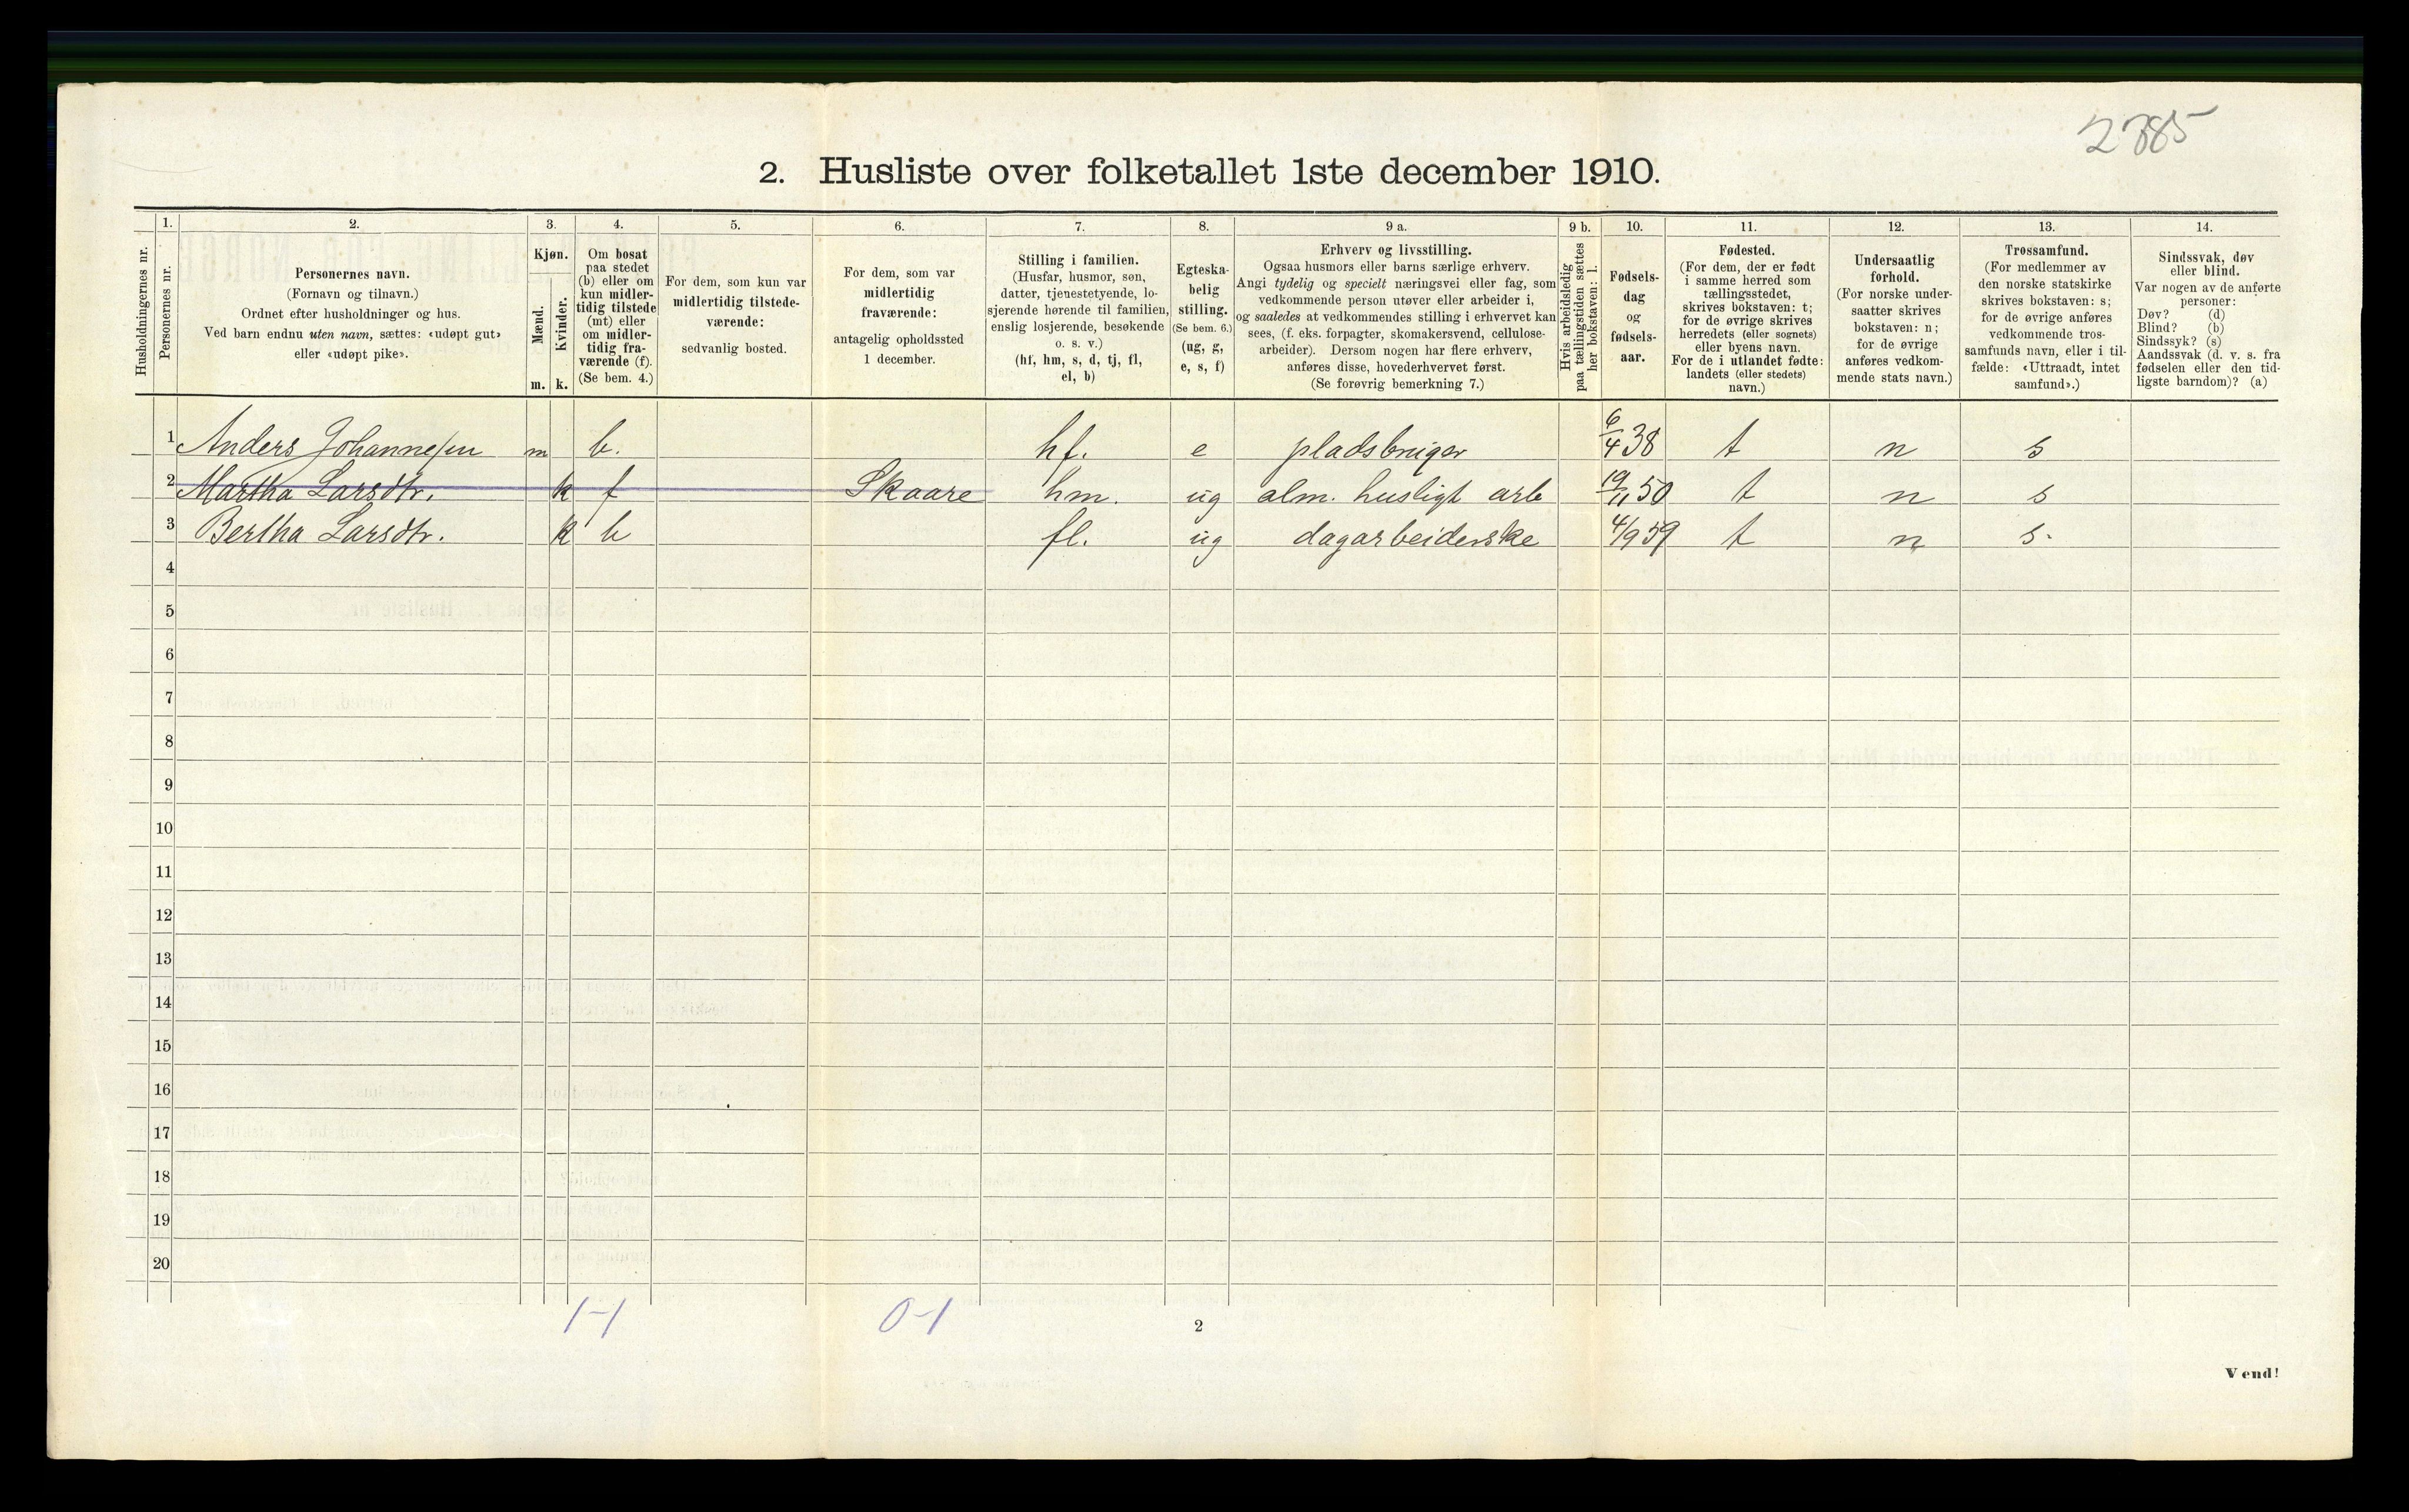 2385
2. Husliste over folketallet 1ste december 1910.
Husholdningernes nr.
1.
Personernes nr.
2.
Personernes navn.
(Fornavn og tilnavn.)
Ordnet efter husholdninger og hus.
Ved barn endnu uten navn, sættes: «udøpt gut»
eller «udøpt pike».
3.
Kjøn.
Mænd.
Kvinder.
m. k.
4.
Om bosat
paa stedet
(b) eller om
kun midler-
tidig tilstede
(mt) eller
om midler-
tidig fra-
værende (f).
(Se bem. 4.)
5.
For dem, som kun var
midlertidig tilstede-
værende:
sedvanlig bosted.
6.
For dem, som var
midlertidig
fraværende:
antagelig opholdssted
1 december.
7.
Stilling i familien.
(Husfar, husmor, søn,
datter, tjenestetyende, lo-
sjerende hørende til familien,
enslig losjerende, besøkende
o. s. v.)
(hf, hm, s, d, tj, fl,
el, b)
8.
Egteska-
belig
stilling.
(Se bem. 6.)
(ug, g,
e, s, f)
9 a.
Erhverv og livsstilling.
Ogsaa husmors eller barns særlige erhverv.
Angi tydelig og specielt næringsvei eller fag, som
vedkommende person utøver eller arbeider i,
og saaledes at vedkommendes stilling i erhvervet kan
sees, (f. eks. forpagter, skomakersvend, cellulose-
arbeider). Dersom nogen har flere erhverv,
anføres disse, hovederhvervet først.
(Se forøvrig bemerkning 7.)
9 b.
Hvis arbeidsledig
paa tællingstiden sættes
her bokstaven: l.
10.
Fødsels-
dag
og
fødsels-
aar.
11.
Fødested.
(For dem, der er født
i samme herred som
tællingsstedet,
skrives bokstaven: t;
for de øvrige skrives
herredets (eller sognets)
eller byens navn.
For de i utlandet fødte:
landets (eller stedets)
navn.)
12.
Undersaatlig
forhold.
(For norske under-
saatter skrives
bokstaven: n;
for de øvrige
anføres vedkom-
mende stats navn.)
13.
Trossamfund.
(For medlemmer av
den norske statskirke
skrives bokstaven: s;
for de øvrige anføres
vedkommende tros-
samfunds navn, eller i til-
fælde: «Uttraadt, intet
samfund».)
14.
Sindssvak, døv
eller blind.
Var nogen av de anførte
personer:
Døv? (d)
Blind? (b)
Sindssyk? (s)
Aandssvak (d. v. s. fra
fødselen eller den tid-
ligste barndom)? (a)
1 Anders Johannesen m b. hf. e pladsbruger 6/4 38 t n s
2 Martha Larsdtr. k f Skaare hm. ug alm. husligt arb 19/11 50 t n s
3 Bertha Larsdtr. k b fl. ug dagarbeiderske 4/9 59 t n s.
4
5
6
7
8
9
10
11
12
13
14
15
16
17
18
19
20
1-1 0-1
2
Vend!